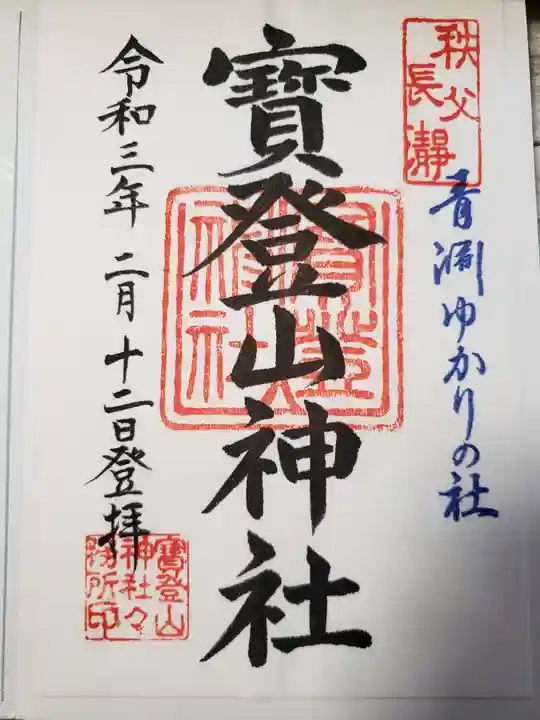 秩父
長瀞
青渕ゆかりの社
寶登山神社
令和三年 二月 十二日登拝
寶登山
神社々
務所印